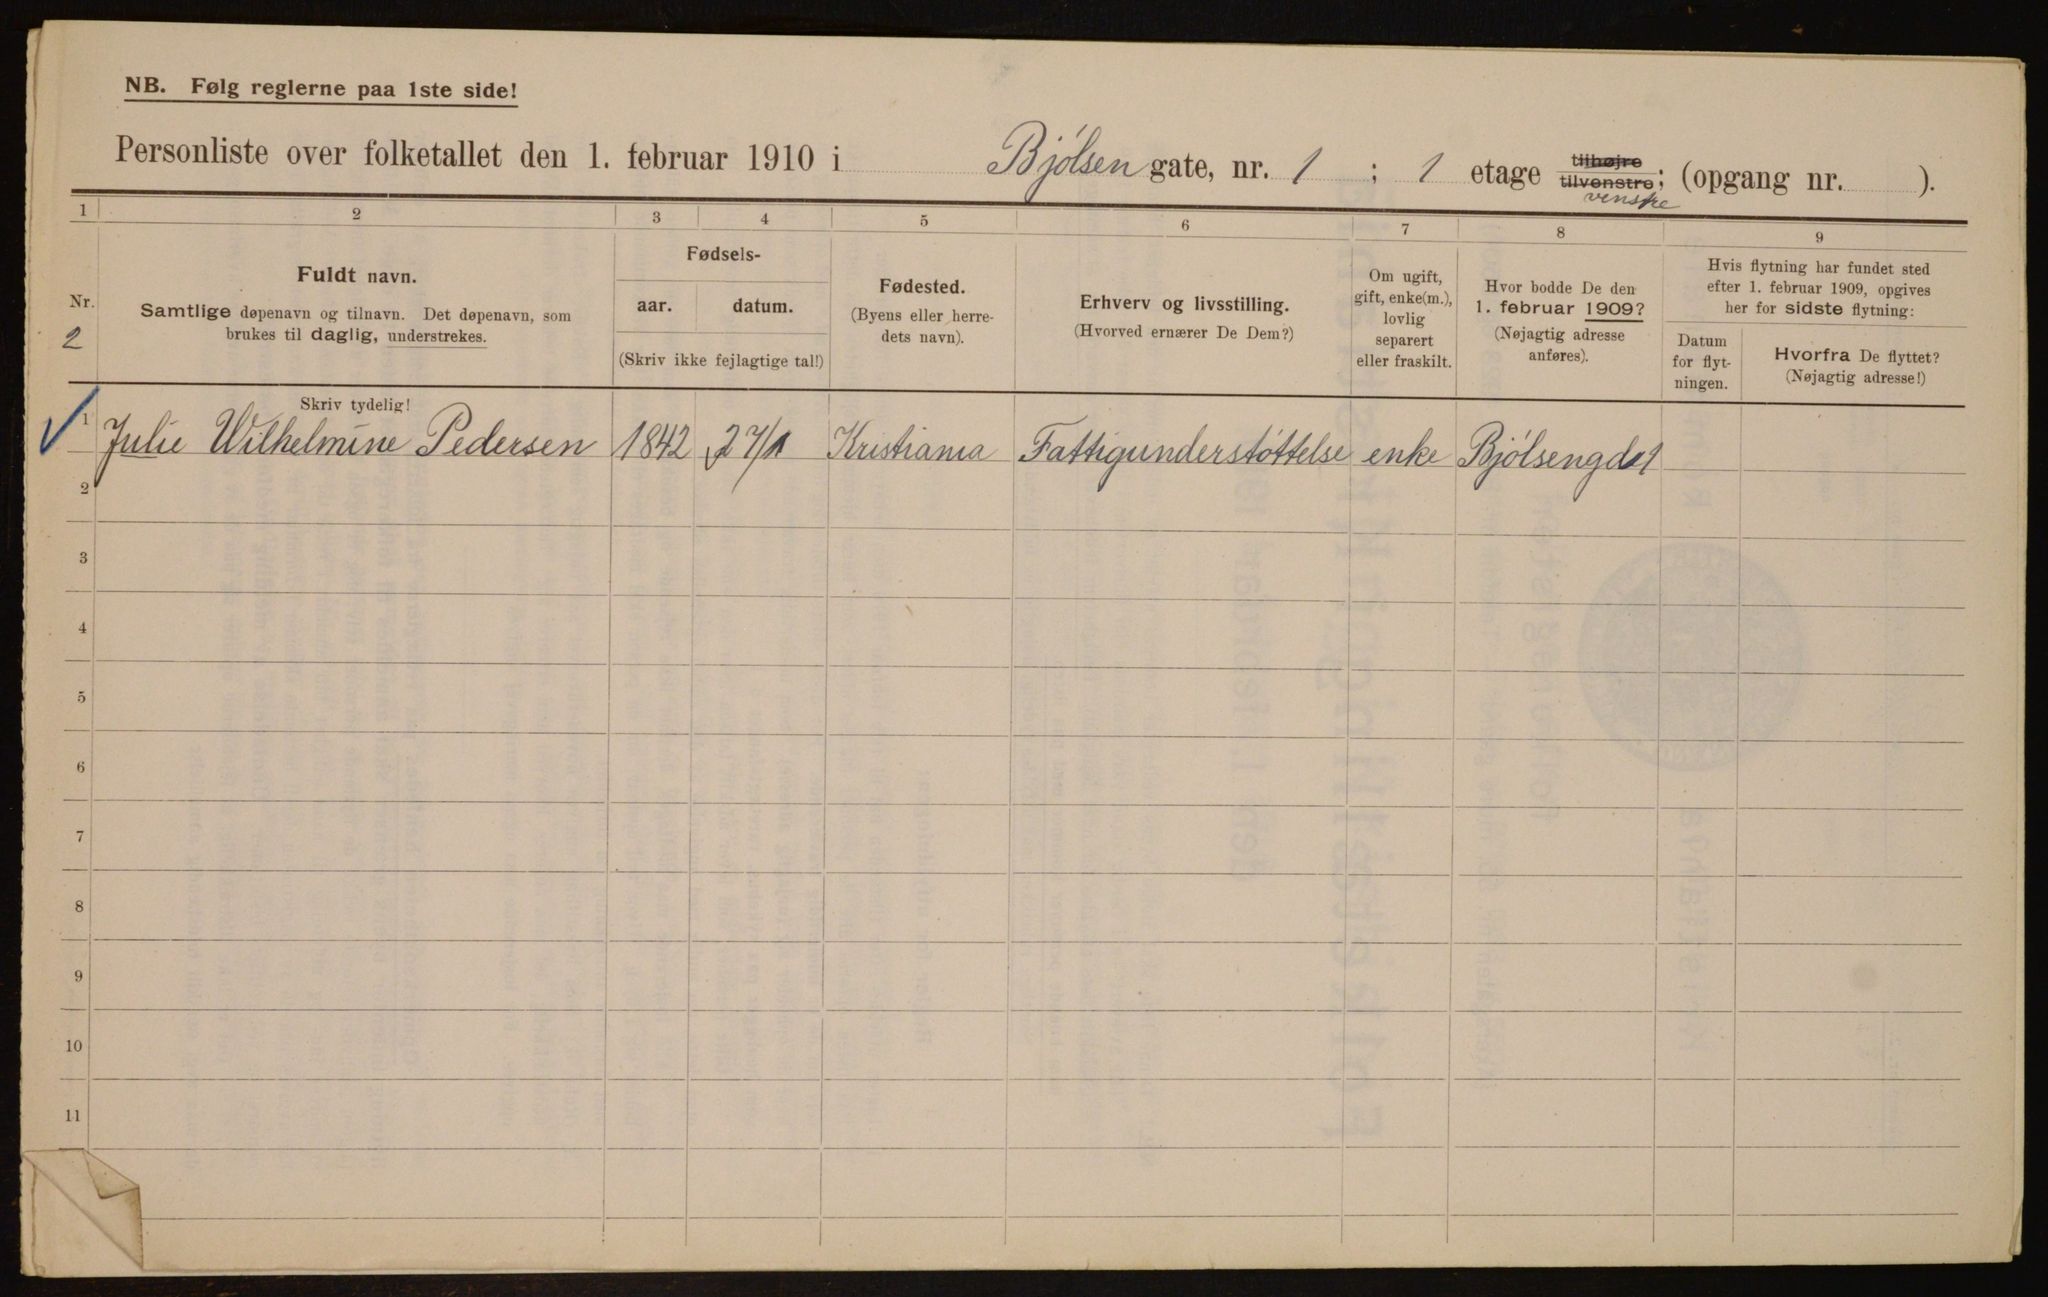 NB. Følg reglerne paa 1ste side!
Personliste over folketallet den 1. februar 1910 i Bjølsen gate, nr. 1 ; 1 etage tilhøjre tilvenstre; (opgang nr. ).
venstre
1 2 3 4 5 6 7 8 9
Nr.
2
Fuldt navn.
Samtlige døpenavn og tilnavn. Det døpenavn, som
brukes til daglig, understrekes.
Skriv tydelig!
Fødsels-
aar. datum.
(Skriv ikke fejlagtige tal!)
Fødested.
(Byens eller herre-
dets navn).
Erhverv og livsstilling.
(Hvorved ernærer De Dem?)
Om ugift,
gift, enke(m.),
lovlig
separert
eller fraskilt.
Hvor bodde De den
1. februar 1909?
(Nøjagtig adresse
anføres).
Hvis flytning har fundet sted
efter 1. februar 1909, opgives
her for sidste flytning:
Datum
for flyt-
ningen.
Hvorfra De flyttet?
(Nøjagtig adresse!)
1 Julie Wilhelmine Pedersen 1842 27/1 Kristiania Fattigunderstøttelse enke Bjølsengd 1
2
3
4
5
6
7
8
9
10
11